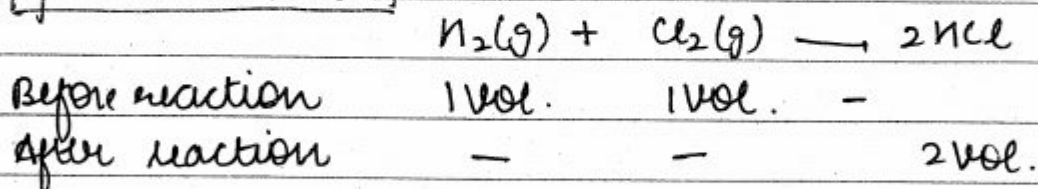 H₂(g) + Cl₂(g) → 2HCl
Before reaction 1 vol. 1 vol. -
After reaction - - 2 vol.